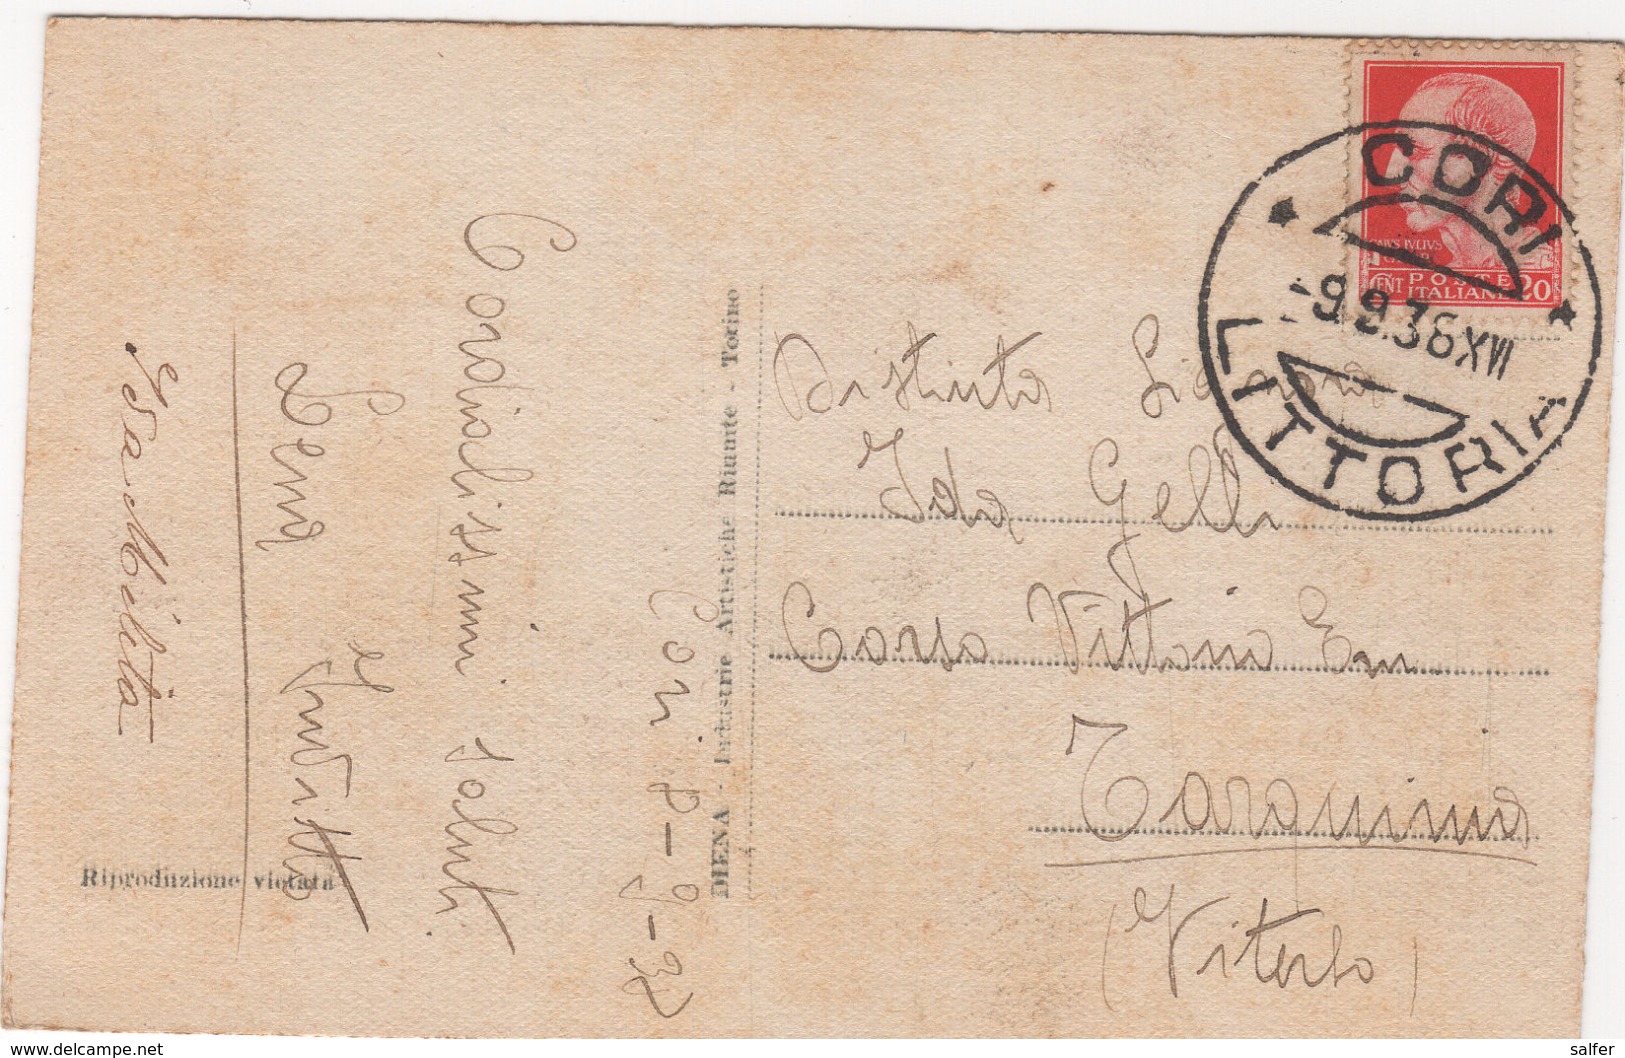 CORI
-9.9.38 XVI
LITTORIA
CAIVS IVLIVS
CENT POSTE 20
ITALIANE
Distinta Signora
Ida Gelli
Corso Vittorio Em.
Tarquinia
(Viterbo)
DIENA - Industrie Artistiche Riunite - Torino
Cori 8-9-38
Cordialissimi saluti
Lena
Isa Mileta
Riproduzione vietata
www.delcampe.net
salfer